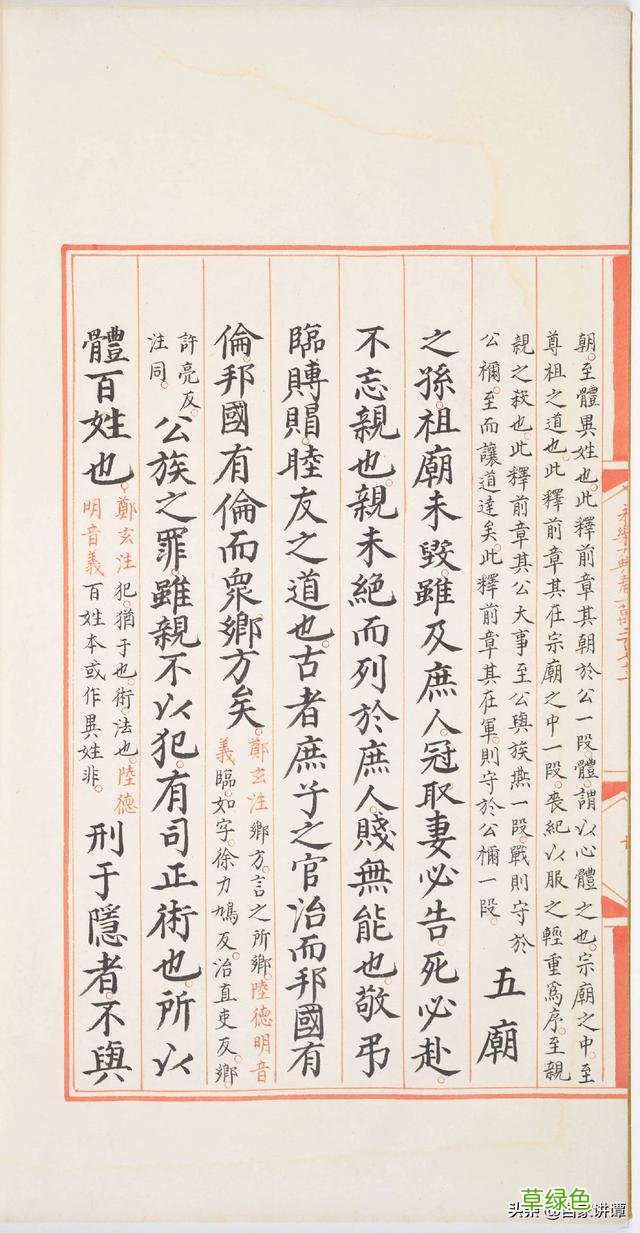 朝。至體異姓也。此釋前章其朝於公一段。體。謂以心體之也。宗廟之中。至
尊祖之道也。此釋前章其在宗廟之中一段。喪紀以服之輕重爲序。至親
親之殺也。此釋前章其公大事至公與族燕一段。戰則守於
公禰。至而讓道達矣。此釋前章其在軍。則守於公禰一段。
五廟
之孫。祖廟未毀。雖及庶人。冠取妻必告。死必赴。
不忘親也。親未絕而列於庶人。賤無能也。敬弔
臨賻賵。睦友之道也。古者庶子之官治而邦國有
倫。邦國有倫而衆鄉方矣。
鄭玄注鄉方。言之所鄉。陸德明音
義臨。如字。徐力鳩反。治直吏反。鄉。
許亮反。
注同。
公族之罪。雖親不以犯。有司正術也。所以
體百姓也。
鄭玄注犯。猶干也。術。法也。陸德
明音義百姓本或作異姓非。
刑于隱者。不與
草绿色